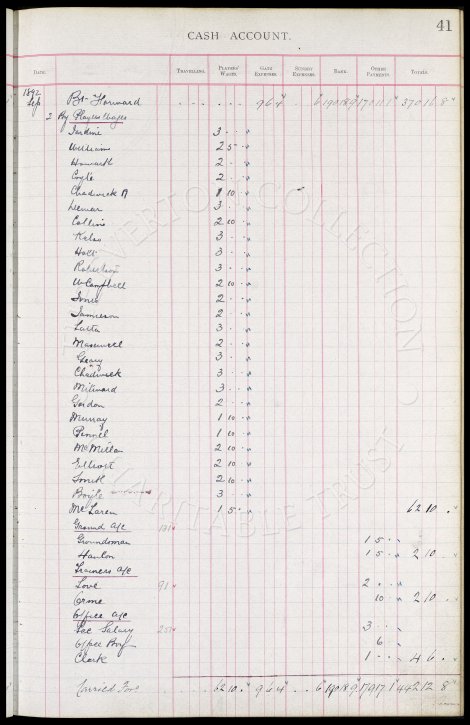 41
CASH ACCOUNT.
DATE. TRAVELLING. PLAYERS' WAGES. GATE EXPENSES. SUNDRY EXPENSES. BANK. OTHER PAYMENTS. TOTALS.
1892
Sep Bt Forward 96 4 " 6 190 18 9 170 11 1 370 16 8
2 By Players Wages
Jardine 3 " "
Williams 2 5 "
Howarth 2 " "
Coyle 2 " "
Chadwick A 1 10 "
Dewar 3 " "
Collins 2 10 "
Kelso 3 " "
Holt 3 " "
Robertson 3 " "
W Campbell 2 10 "
Jones 2 " "
Jamieson 2 " "
Latta 3 " "
Maxwell 2 " "
Geary 3 " "
Chadwick 3 " "
Milward 3 " "
Gordon 2 " "
Murray 1 10 "
Pinnel 1 10 "
McMillan 2 10 "
Elliott 2 10 "
Smith 2 10 "
Boyle 3 " "
McLaren 1 5 " 62 10 "
Ground a/c 131
Groundsman 1 5 "
Hanlon 1 5 " 2 10 "
Trainers a/c
Love 91 2 " "
Orme 10 " 2 10 "
Office a/c
Sec Salary 251 3 " "
Office Boy 6 "
Clerk 1 " " 4 6 "
Carried Ford 62 10 " 96 4 " 6 190 18 9 179 17 1 442 12 8
EVERTON COLLECTION
CHARITABLE TRUST